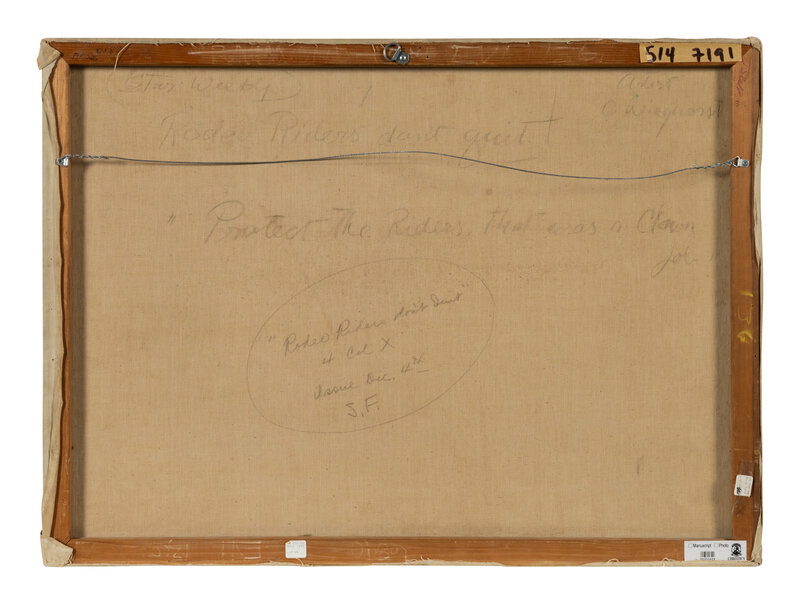 514 7191
(Star Weekly)
Artist
O Wieghorst
Rodeo Riders dont quit!
" Protect The Riders, that was a Clown
Job
"Rodeo Riders don't Quit"
4 Col X
Issue Dec. 4th
S.F.
Manuscript Photo
CHRISTIE'S